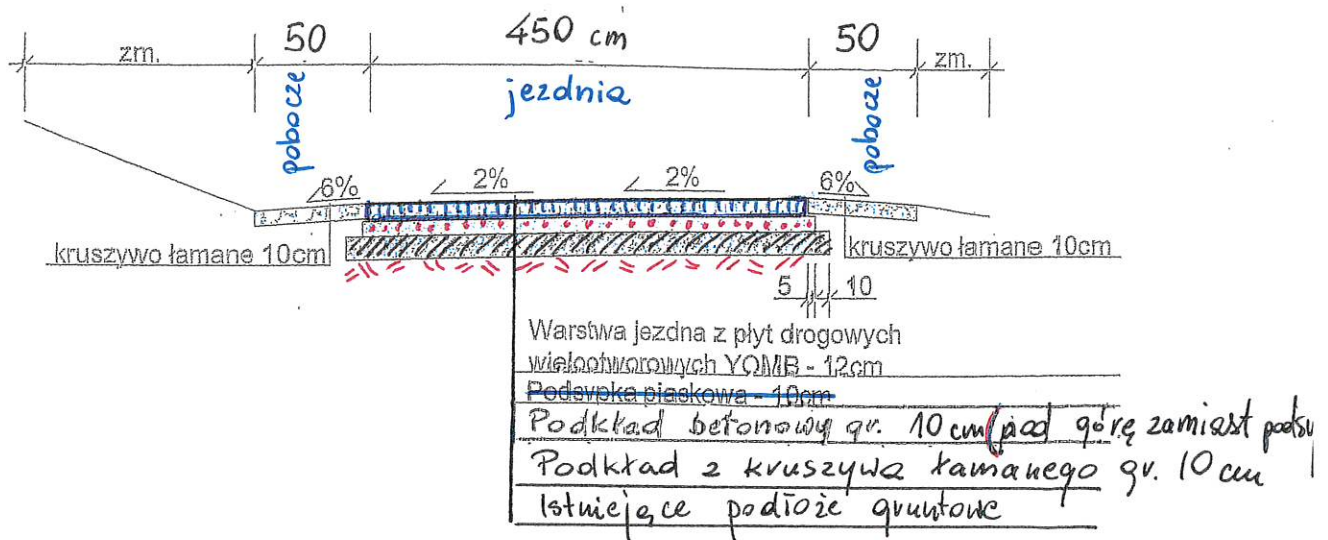 zm. 50 450 cm 50 zm.
pobocze jezdnia pobocze
6% 2% 2% 6%
kruszywo łamane 10cm kruszywo łamane 10cm
5 10
Warstwa jezdna z płyt drogowych
wielootworowych YOMB - 12cm
Podsypka piaskowa - 10cm
Podkład betonowy gr. 10 cm (pod górę zamiast podsy
Podkład z kruszywa łamanego gr. 10 cm
Istniejące podłoże gruntowe